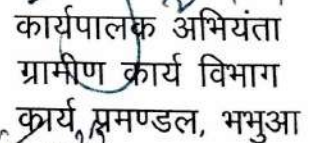 कार्यपालक अभियंता
ग्रामीण कार्य विभाग
कार्य प्रमण्डल, भभुआ